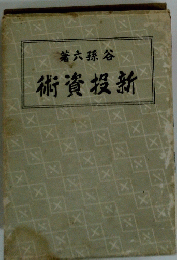 谷孫六著
新投資術